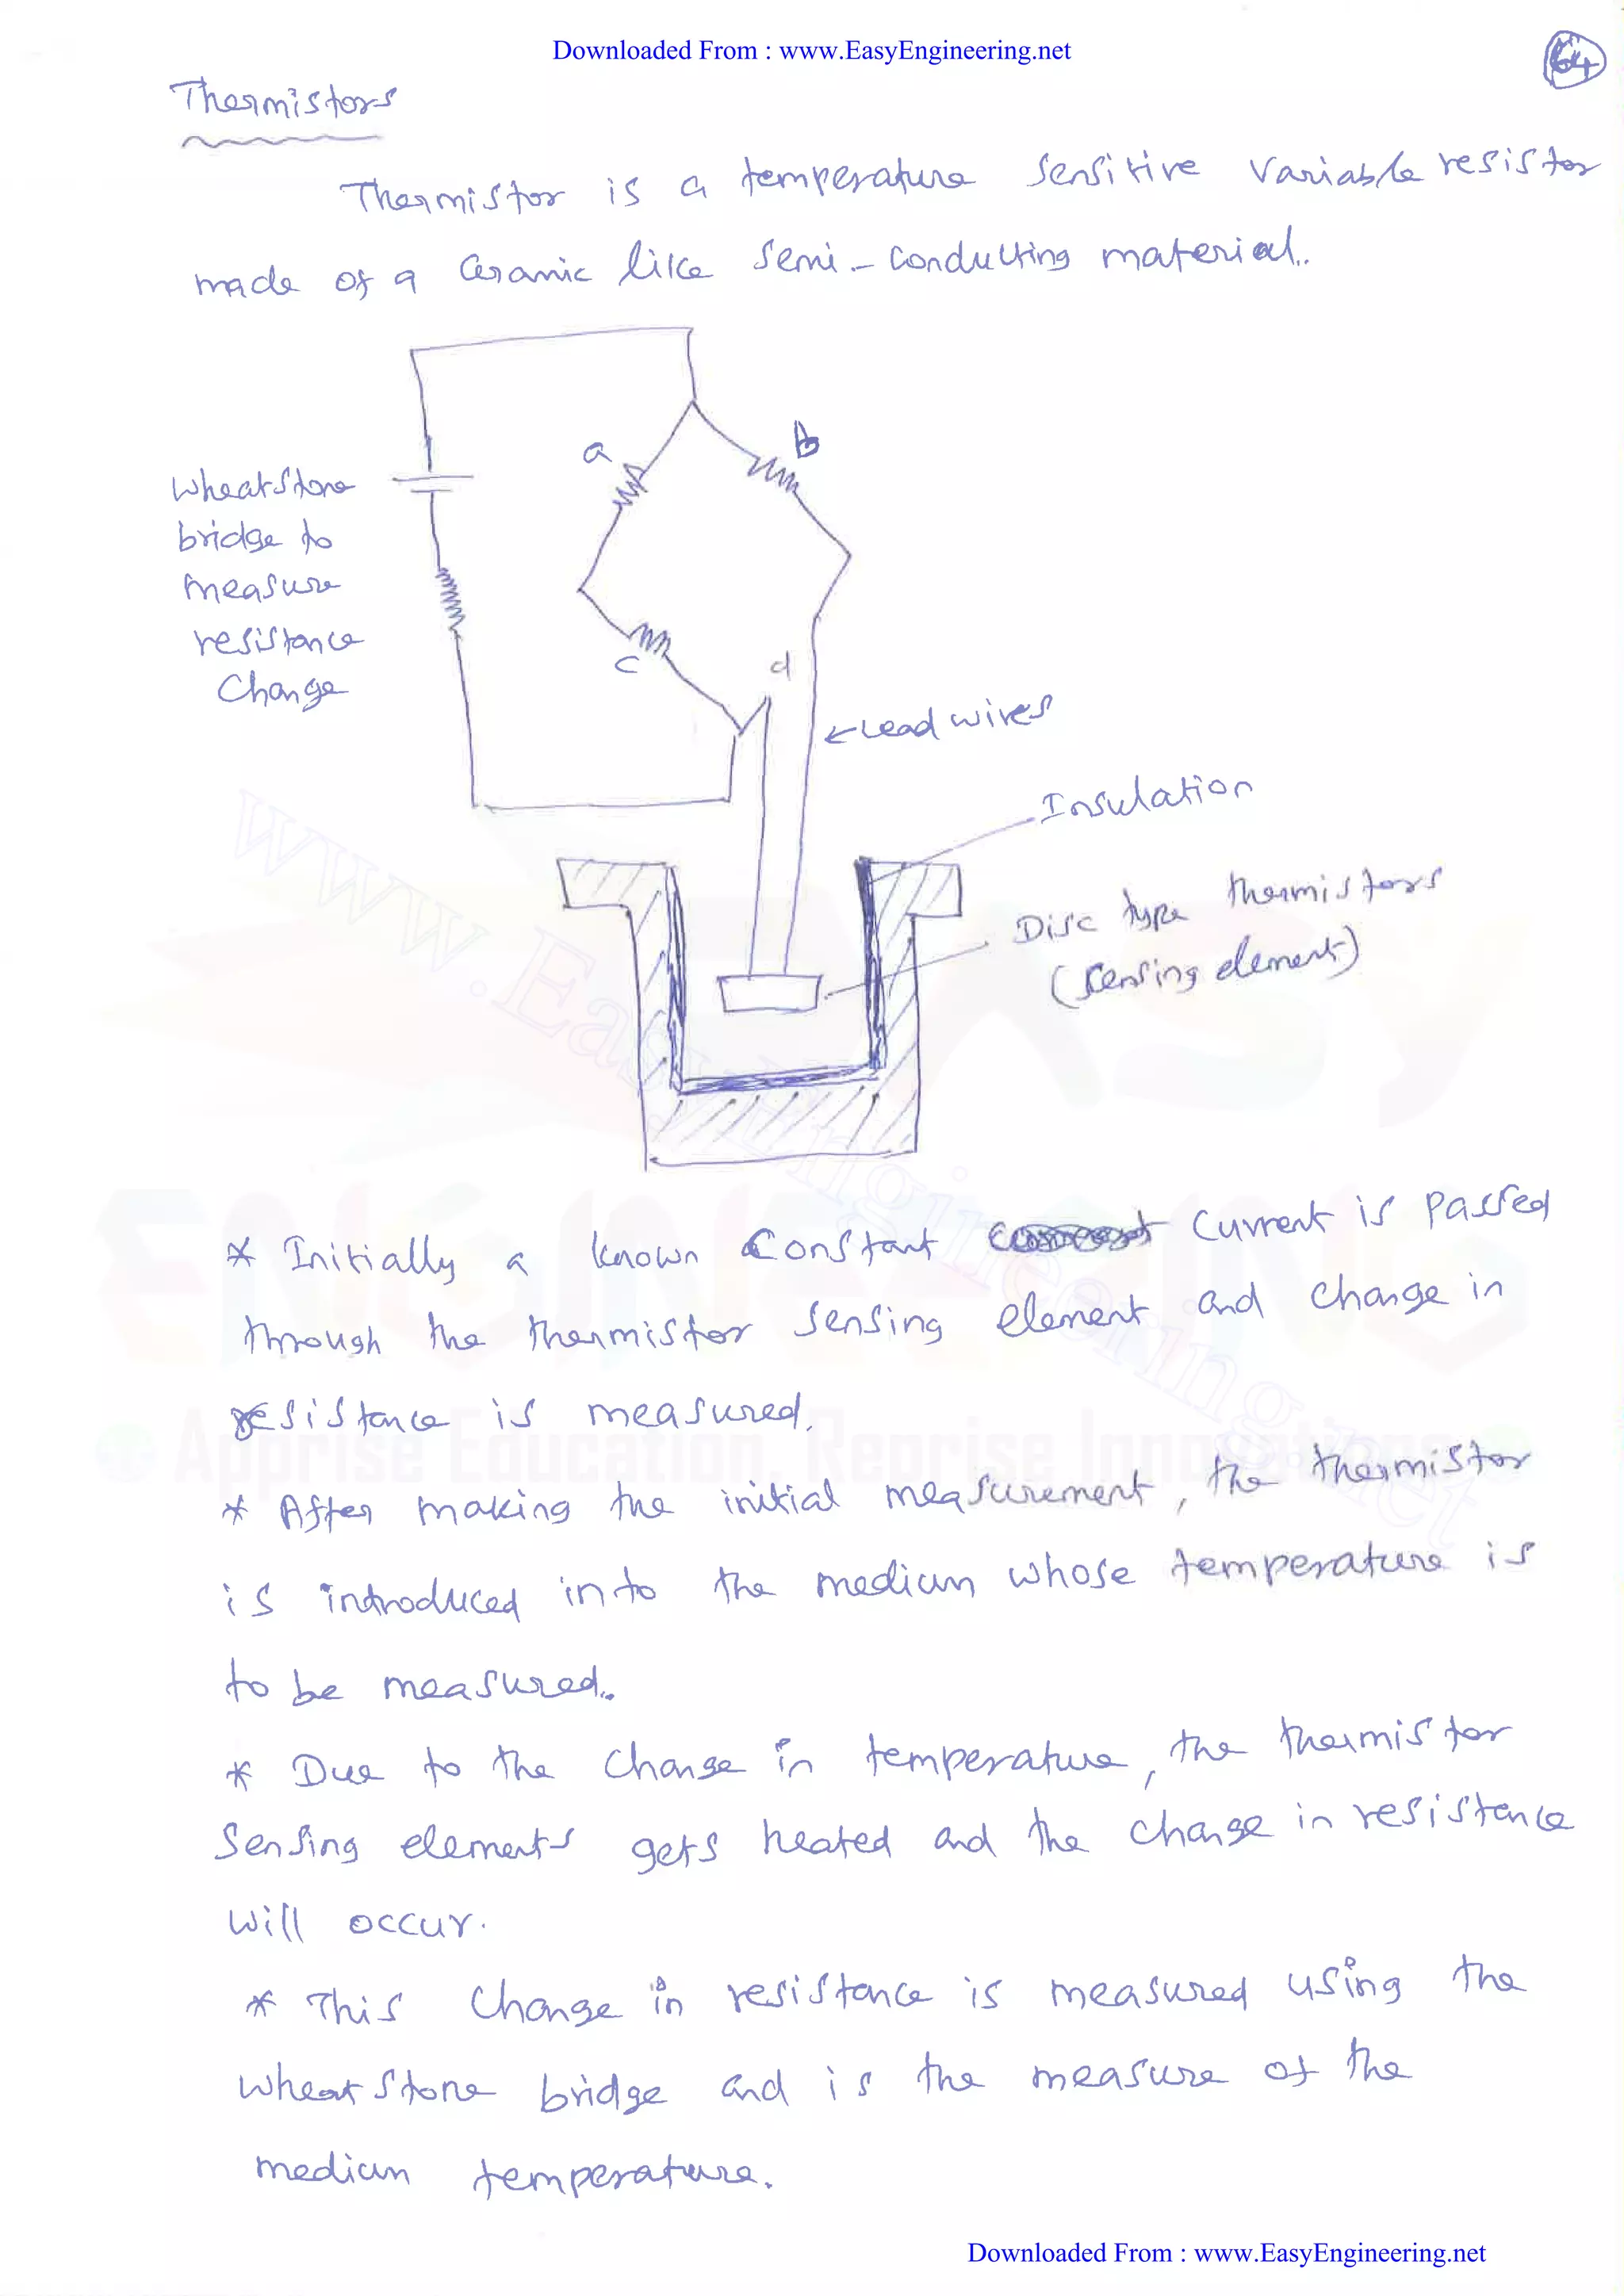 Downloaded From : www.EasyEngineering.net
64
Thermistors
Thermistor is a temperature sensitive variable resistor
made of a ceramic like semi-conducting material.
a
b
Wheatstone
bridge to
measure
resistance
change
c
d
←Lead wires
Insulation
Disc type thermistors
(sensing element)
* Initially a known constant current is passed
through the thermistor sensing element and change in
resistance is measured.
* After making the initial measurement, the thermistor
is introduced into the medium whose temperature is
to be measured.
* Due to the change in temperature, the thermistor
sensing elements gets heated and the change in resistance
will occur.
* This change in resistance is measured using the
wheatstone bridge and is the measure of the
medium temperature.
www.EasyEngineering.net
EASY
ENGINEERING
Apprise Education, Reprise Innovations
Downloaded From : www.EasyEngineering.net